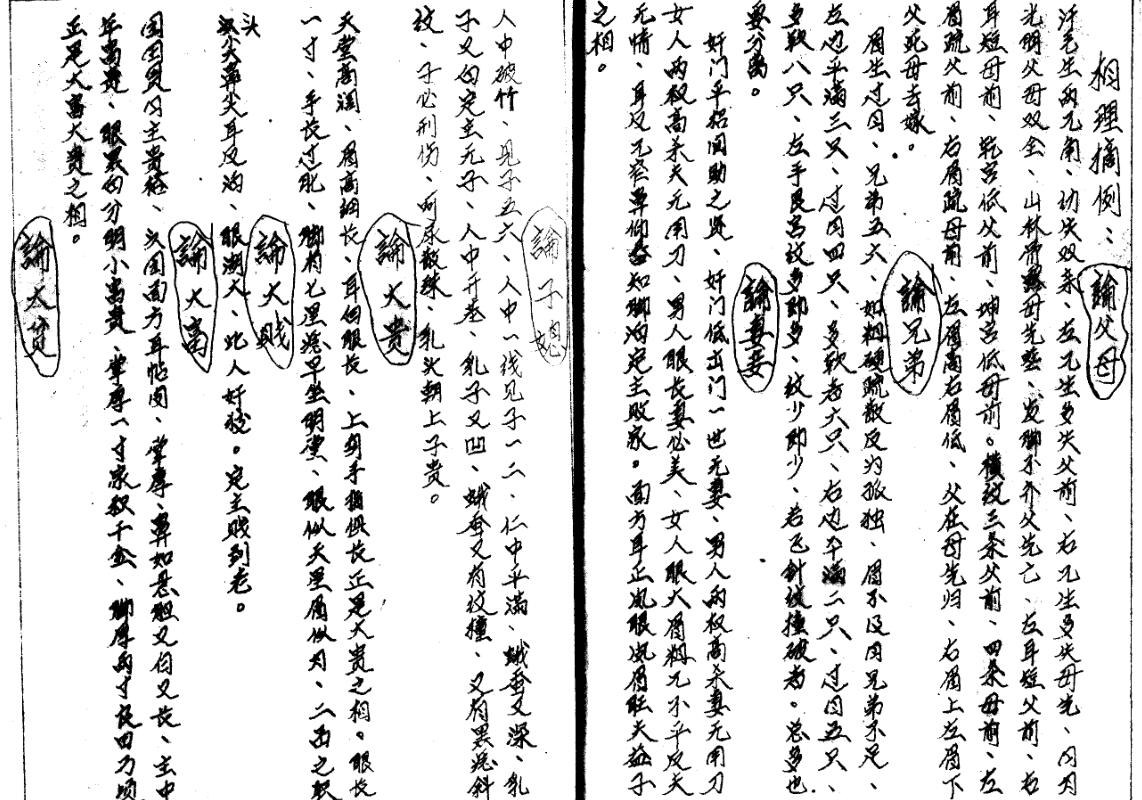 相理摘例：
論父母
汗毛生两兀角、幼失双亲、左兀生多失父前、右兀生多失母先、日月
光明父母双全、山林骨露母先丧、发脚不齐父先亡、左耳短父前、右
耳短母前、乾宫低父前、坤宫低母前。横纹三条父前、四条母前、左
眉疏父前、右眉疏母前、左眉高右眉低、父在母先归、右眉上左眉下
父死母去嫁。
論兄弟
眉生过目、兄弟五六、如粗硬疏散反为孤独、眉不及目兄弟不足、
左边平满三只、过目四只、多软者六只、右边平满二只、过目五只、
多软八只、左手艮宫纹多即多、纹少即少、若飞针纹撞破者。总多也
要分离。
論妻妾
奸门平招国助之贤、奸门低出门一世无妻、男人两权高杀妻无用刀
女人两权高杀夫无用刀、男人眼长妻必美、女人眼大眉粗兀不平反夫
无情、耳反兀窄鼻仰知脚泊定主败家。面方耳正凤眼凤眉旺夫益子
之相。
論子媳
人中破竹、见子五六、人中一线见子一二、仁中平满、蛾蚕又深、乳
子又白定主无子、人中开差、乳子又凹、蛾蚕又有纹撞、又有黑痣斜
纹、子必刑伤、屙尿散珠、乳头朝上子贵。
論大贵
天堂高阔、眉高细长、耳白眼长、上身手猶俱长正是大贵之相。眼长
一寸、手长过膝、脚有七黑痣早坐明堂、眼似天星眉似月、二出之
論大賎
头尖鼻少耳反泊、眼湖大、此人奸狡。定主贱到老。
論大富
国圆员日主贵格、头圆面方耳帖肉、掌厚、鼻如悬胆又白又长、主中
年富贵、眼黑白分明小富贵、掌厚一寸家积千金、脚厚两寸良田万顷
正是大富大贵之相。
論大貧